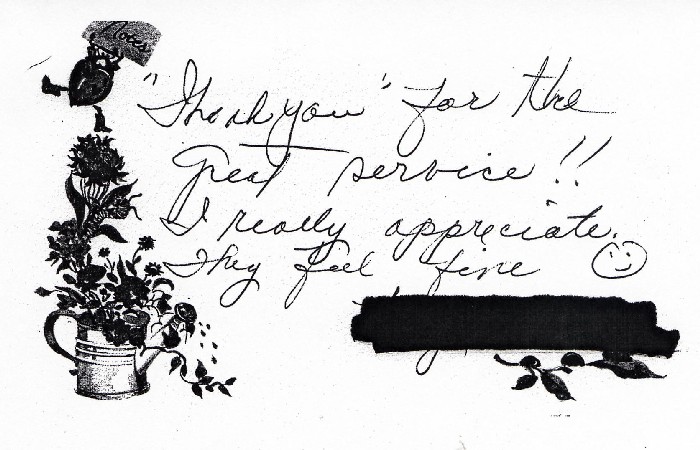 Notes
"Thank you" for the
great service!!
I really appreciate.
They feel fine